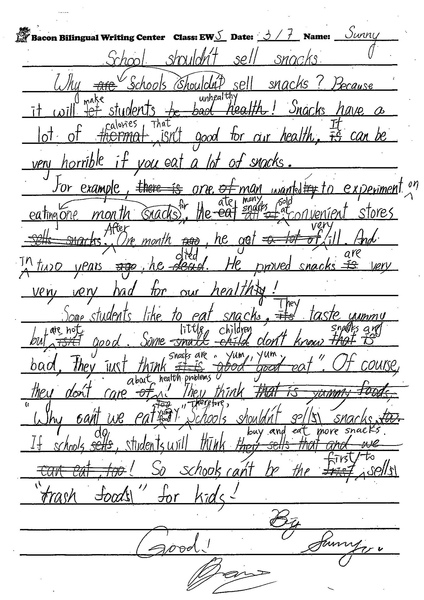 Bacon Bilingual Writing Center Class: EW5 Date: 3/7 Name: Sunny
School shouldn't sell snacks
Why are Schools shouldn't sell snacks? Because
make unhealthy
it will let students be bad health! Snacks have a
calories That It
lot of thermal isn't good for our health, is can be
very horrible if you eat a lot of snacks.
For example, there is one of man wanted to experiment on
for ate many snacks sold at
eating one month snacks, he eat all of convenient stores
After very
sells snacks. One month ago, he got a lot of ill. And
In died
two years ago he dead. He proved snacks is very
very very bad for our health!
They
Some students like to eat snacks, its taste yummy
are not little children snacks are
but isn't good. Some small children don't know that is
snacks are "yum, yum"
bad, They just think it is "good good eat" Of course,
about health problems
they don't care of! They think that is yummy foods,
Therefore,
"Why can't we eat Schools shouldn't sells snacks too
do buy and eat more snacks.
If schools sells, students will think they sells that and we
first to
can eat too! So schools can't be the first sells
"trash foods" for kids!
By
Good! Sunny